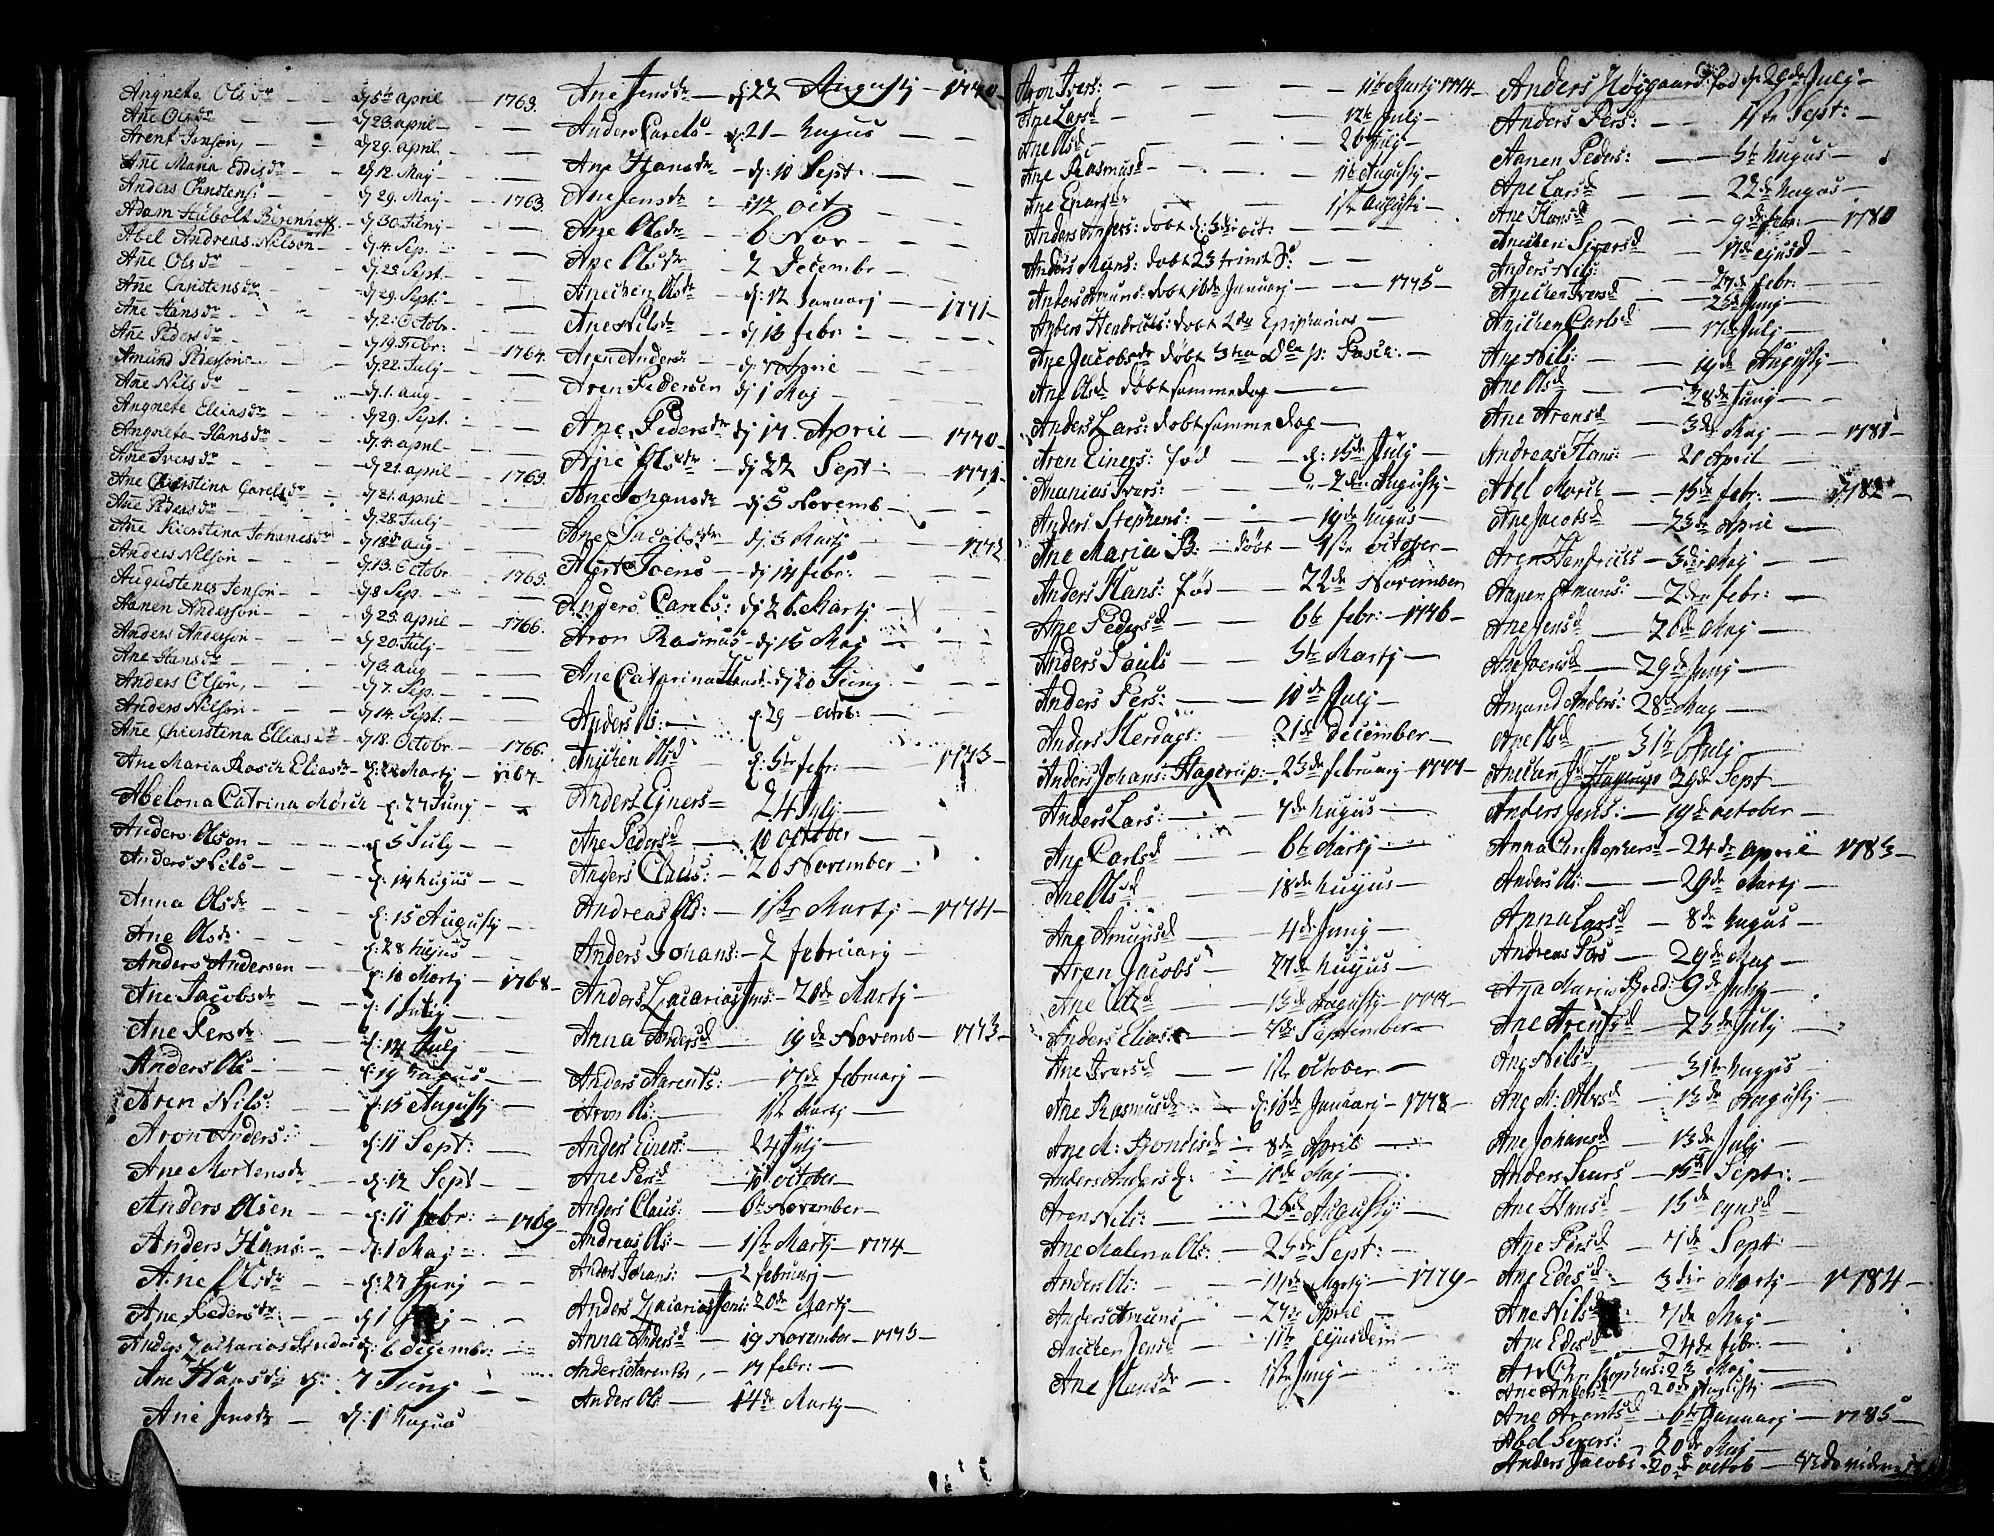 Angnete Olsdr — — dj 5te april — 1763.
Ane Olsdr — — dj 23. april — —
Arent Jenson, — — dj 29. april. — —
Ane Maria Eddisdr — — dj 12. Maj — —
Anders Christens: — — dj 29. Maj — 1763.
Adam Hübolt Berenhoff — dj 30 Junj — —
Abel Andreas Nilsön — dj 4. Sep. — —
Ane Olsdr — — dj 28. Sept. — —
Ane Christensdr — — dj 29. Sept: — —
Ane Hansdr — — dj 2: Octobr. — —
Ane Pedersdr — — dj 19. Febr: — 1764.
Amund Pederson — — dj 22. Julj — —
Ane Nilsdr — — dj 1. aug — —
Angnete Eliasdr — — dj 29. Sept. — —
Angneta Hansdr — — dj 4. aprel — —
Ane Iversdr — — dj 21. april — 1765.
Ane Chierstina Carelsdr — dj 21. april — —
Ane Pedersdr — — dj 28. Julj — —
Ane Kierstina Johanesdr — dj 18d aug — —
Anders Nilsön — — dj 13. Octobr. — 1765.
Augustenes Jensön — — dj 8 Sep. — —
Aanen Anderson — — dj 25. april — 1766.
Anders Anderson — — dj 20. Julj — —
Ane Hansdr — — dj 3. aug — —
Anders Olsön, — — dj 7. Sep. — —
Anders Nilsön — — dj 14. Sept: — —
Ane Chierstina Elliasdr — dj 18. Octobr. — 1766.
Ane Maria Rasch Eliasdr — d: 22 Martj — 1767 —
Abelona Catrina Mörch — d: 27 Junj — —
Anders Olson — — d 5 Julj — —
Anders Nils — — d: 14 hujus — —
Anna Olsdr — — d: 15 Augustj — —
Ane Olsdr — — d: 28 hujus — —
Anders Andersen — d: 10 Martj — 1768 —
Ane Jacobsdr — — d: 1 Julij — —
Ane Persdr — — d: 14 Julj — —
Anders Ols — — d: 19 hujus — —
Aren Nils: — — d: 15 Augustj — —
Aron Anders: — — d: 11 Sept: — —
Ane Mortensdr — — d: 12 Sept — —
Anders Olsen — — d: 11 febr: — 1769 —
Anders Hans: — — d: 1 Maj — —
Ane Olsdr — — d: 27 Junj — —
Ane Pedersdr: — — dj 1 — —
Anders Zacharias — d: 6 decembr: — —
Ane Hansdr d: 7 Junj — —
Ane Jensdr — dj: 1 hujus
Ane Jensdr — dj 22 Augustj — 1770 —
Anders Carels — d: 21 — hujus — —
Ane Hansdr — dj: 10 Sept: — —
Ane Jensdr — d 12 oct — —
Ane Olsdr — 6 Nov — —
Ane Olsdr — 2 Decembr — —
Anechen Olsdr — d: 12 Januarj — 1771 —
Ane Nilsdr — dj 13 febr: — —
Aren Anders: — dj. 7 Aprie — —
Aren Pedersen dj 1 Maj — —
Ane Pedersdr dj 17. Aprie — 1770 —
Ane Olsdr — dj 22 Sept: — 1771 —
Ane Johansdr — dj 5 Novemb — —
Ane Jacobsdr dj: 3 Martj — 1772
Alert Joens — dj 14 febr: — —
Anders Carels: dj 26 Martj — —
Aron Rasmus — dj 15 Maj — —
Ane Catarina Hansd: dj 20 Junj — —
Anders Ols: — d: 29 — octb: — —
Anichen Olsd — d: 5te febr: — 1773 —
Anders Ejners — 24 Julj — —
Ane Pedersd — 10 october — —
Anders Claus: — 26 November — —
Andreas Ols: — 1ste Martj — 1774 —
Anders Johans: — 2 februarj —
Anders Zacarias Jens: — 20de Martj —
Anna Andersd — 19de Novemb — 1773 —
Anders Aarents: — 17de februarj —
Aron Ols: — 1ste Martj —
Anders Einers: — 24 Julj —
Ane Persd — 10 october —
Anders Claus: — 6te November —
Andreas Ols: — 1ste Martj — 1774 —
Anders Johans: — 2 februarj —
Anders Zacarias Jens: 20de Martj —
Anna Andersd — 19 November — 1773 —
Anders Aarents, — 17 febr: —
Anders Ols: — 14de Martj —
Aron Ivers: — — 11te Martj 1774 —
Ane Larsd — — 12te Julj —
Ane Olsd — — 26 Julj —
Ane Rasmusd — — 11te Augustj —
Ane — — 1ste Augusti —
Anders Anfers: dobt d: 3die oct: — —
Anders Mons: dobt 23 trinit S: — —
Anders Amuns: dobt 16de Januarj — — 1775 —
Anders Hendricks: dobt 2den Epiphanias —
Ane Jacobsdr döbt 3tia Dca p: Pasce: —
Ane Olsd döbt samme dag — —
Anders Lars: dobt samme dag —
Aren Einers: föd — d: 15de Julj —
Ananias Ivers: — 2den Augustj —
Anders Stephens: — 19de hujus —
Ane Maria B: — döbt — 1ste october —
Anders Hans: föd — 22de November
Ane Pedersd — 6te febr: — 1776 —
Anders Pauls — — 5te Martj —
Anders Pers: — — 10de Julj —
Anders Herdags: — 21de december —
Anders Johans: Hagerup: — 23de februarj — 1777 —
Anders Lars: — — 7de hujus —
Ane Carlsd — 6te Martj —
Ane Olsd — 18de hujus —
Ane Amunsd — 4de Junj —
Aren Jacobs — 27de hujus —
Ane — 13de Augustj — 1777 —
Anders Elias: — 7de September —
Ane Iversd — 1ste october —
Ane Rasmusdr — d: 16de Januarj — 1778 —
Ane M: — 8de April —
Anders Anders d: — 10de Maj —
Aren Nils: — 25de Augustj: —
Ane Malena Ols: — 23de Sept: —
Anders Ols: — 14de Martj — 1779 —
Anders Amuns, — 27de Aprie —
Anichen Jensd — 11te Ejusdem —
Ane Hansdr — 1ste Junj —
Anders Höÿgaard föd d: 26de Julj:
Anders Pers: — — 17de Sept: —
Aanen Peders: — — 5te hujus —
Ane Larsd — — 22de hujus —
Ane Hansd — — 9de febr: — 1780
Anichen Siversd — 11te ejusd —
Anders Nils: — 27de febr: —
Anichen Iversd — 25de Junj —
Anichen Carlsd — 17de Julj —
Ane Nils: — 14de Augustj —
Ane Olsd — 28de Junj —
Ane Arensd — 3de Maj — 1781 —
Andreas Hans: — 21 April —
Abel Morch — 15de febr: — 1782 —
Ane Jacobsd — 23de Aprie —
Aren Hendricks — 3die Maj —
Aanen Amuns: — 2den febr: —
Ane Jensd — 26de Maj —
Ane Joensd — 29de Junj —
Amund Anders: 28de Maj —
Ane Olsd — 31te Julj —
Anichen J: Hagerup 29de Sept —
Anders Jens: — 19de october —
Anna Christophersd — 24de Aprie — 1783 —
Anders Ols: — 29de Martj —
Anna Larsd — 8de hujus —
Andreas Pers — 29de Maj —
Ana Maria — 9de Junj —
Ane Arentsd — 23de Julj —
Ane Nilsd — 31te hujus —
Ane M: Olsd — 13de Augustj —
Ane Johansd — 13de Julj —
Anders — 15de Sept: —
Ane Hansd — 15de ejusd —
Ane Persd — 7de Sept: —
Ane Edesd — 3die Martj — 1784 —
Ane Nilsd — 7de Maj —
Ane Edesd — 24de febr: —
Christophers: 23 Maj —
Ane Andersd — 20de Augustj —
Ane Arentsd — 6te Januarj — 1785 —
Abel Sivers: — 20de Maj —
Anders Jacobs — 20de octob —